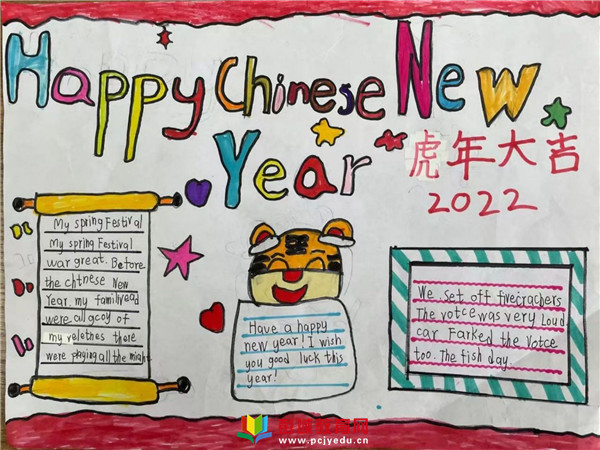 Happy Chinese New
Year
虎年大吉
2022
My spring Festival
My spring Festival
war great. Before
the chtnese New
Year. my family
were all
my relethes there
were playing all the night.
Have a happy
new year! I wish
you good luck this
year!
We set off fivecrachers
The votce was very Loud.
car Farked the votce
too. The fish day.
www.pcjyedu.cn